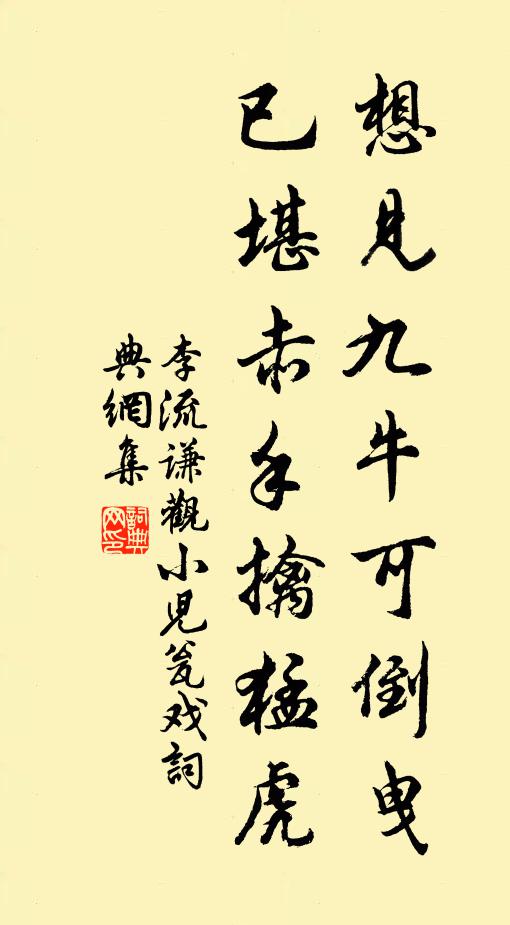 想見九牛可倒曳
已堪赤手擒猛虎
李流谦觀小児瓮戏詞
典網集
詞典网印